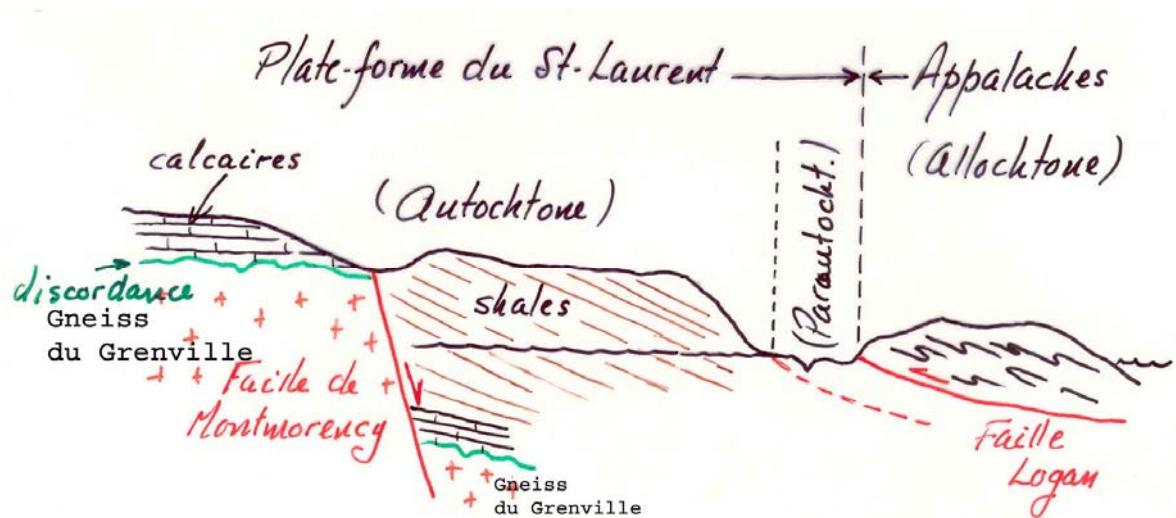 Plate-forme du St-Laurent
Appalaches
(Allochtone)
calcaires
(Autochtone)
(Parautocht.)
discordance
Gneiss
du Grenville
shales
Faille de
Montmorency
Gneiss
du Grenville
Faille
Logan